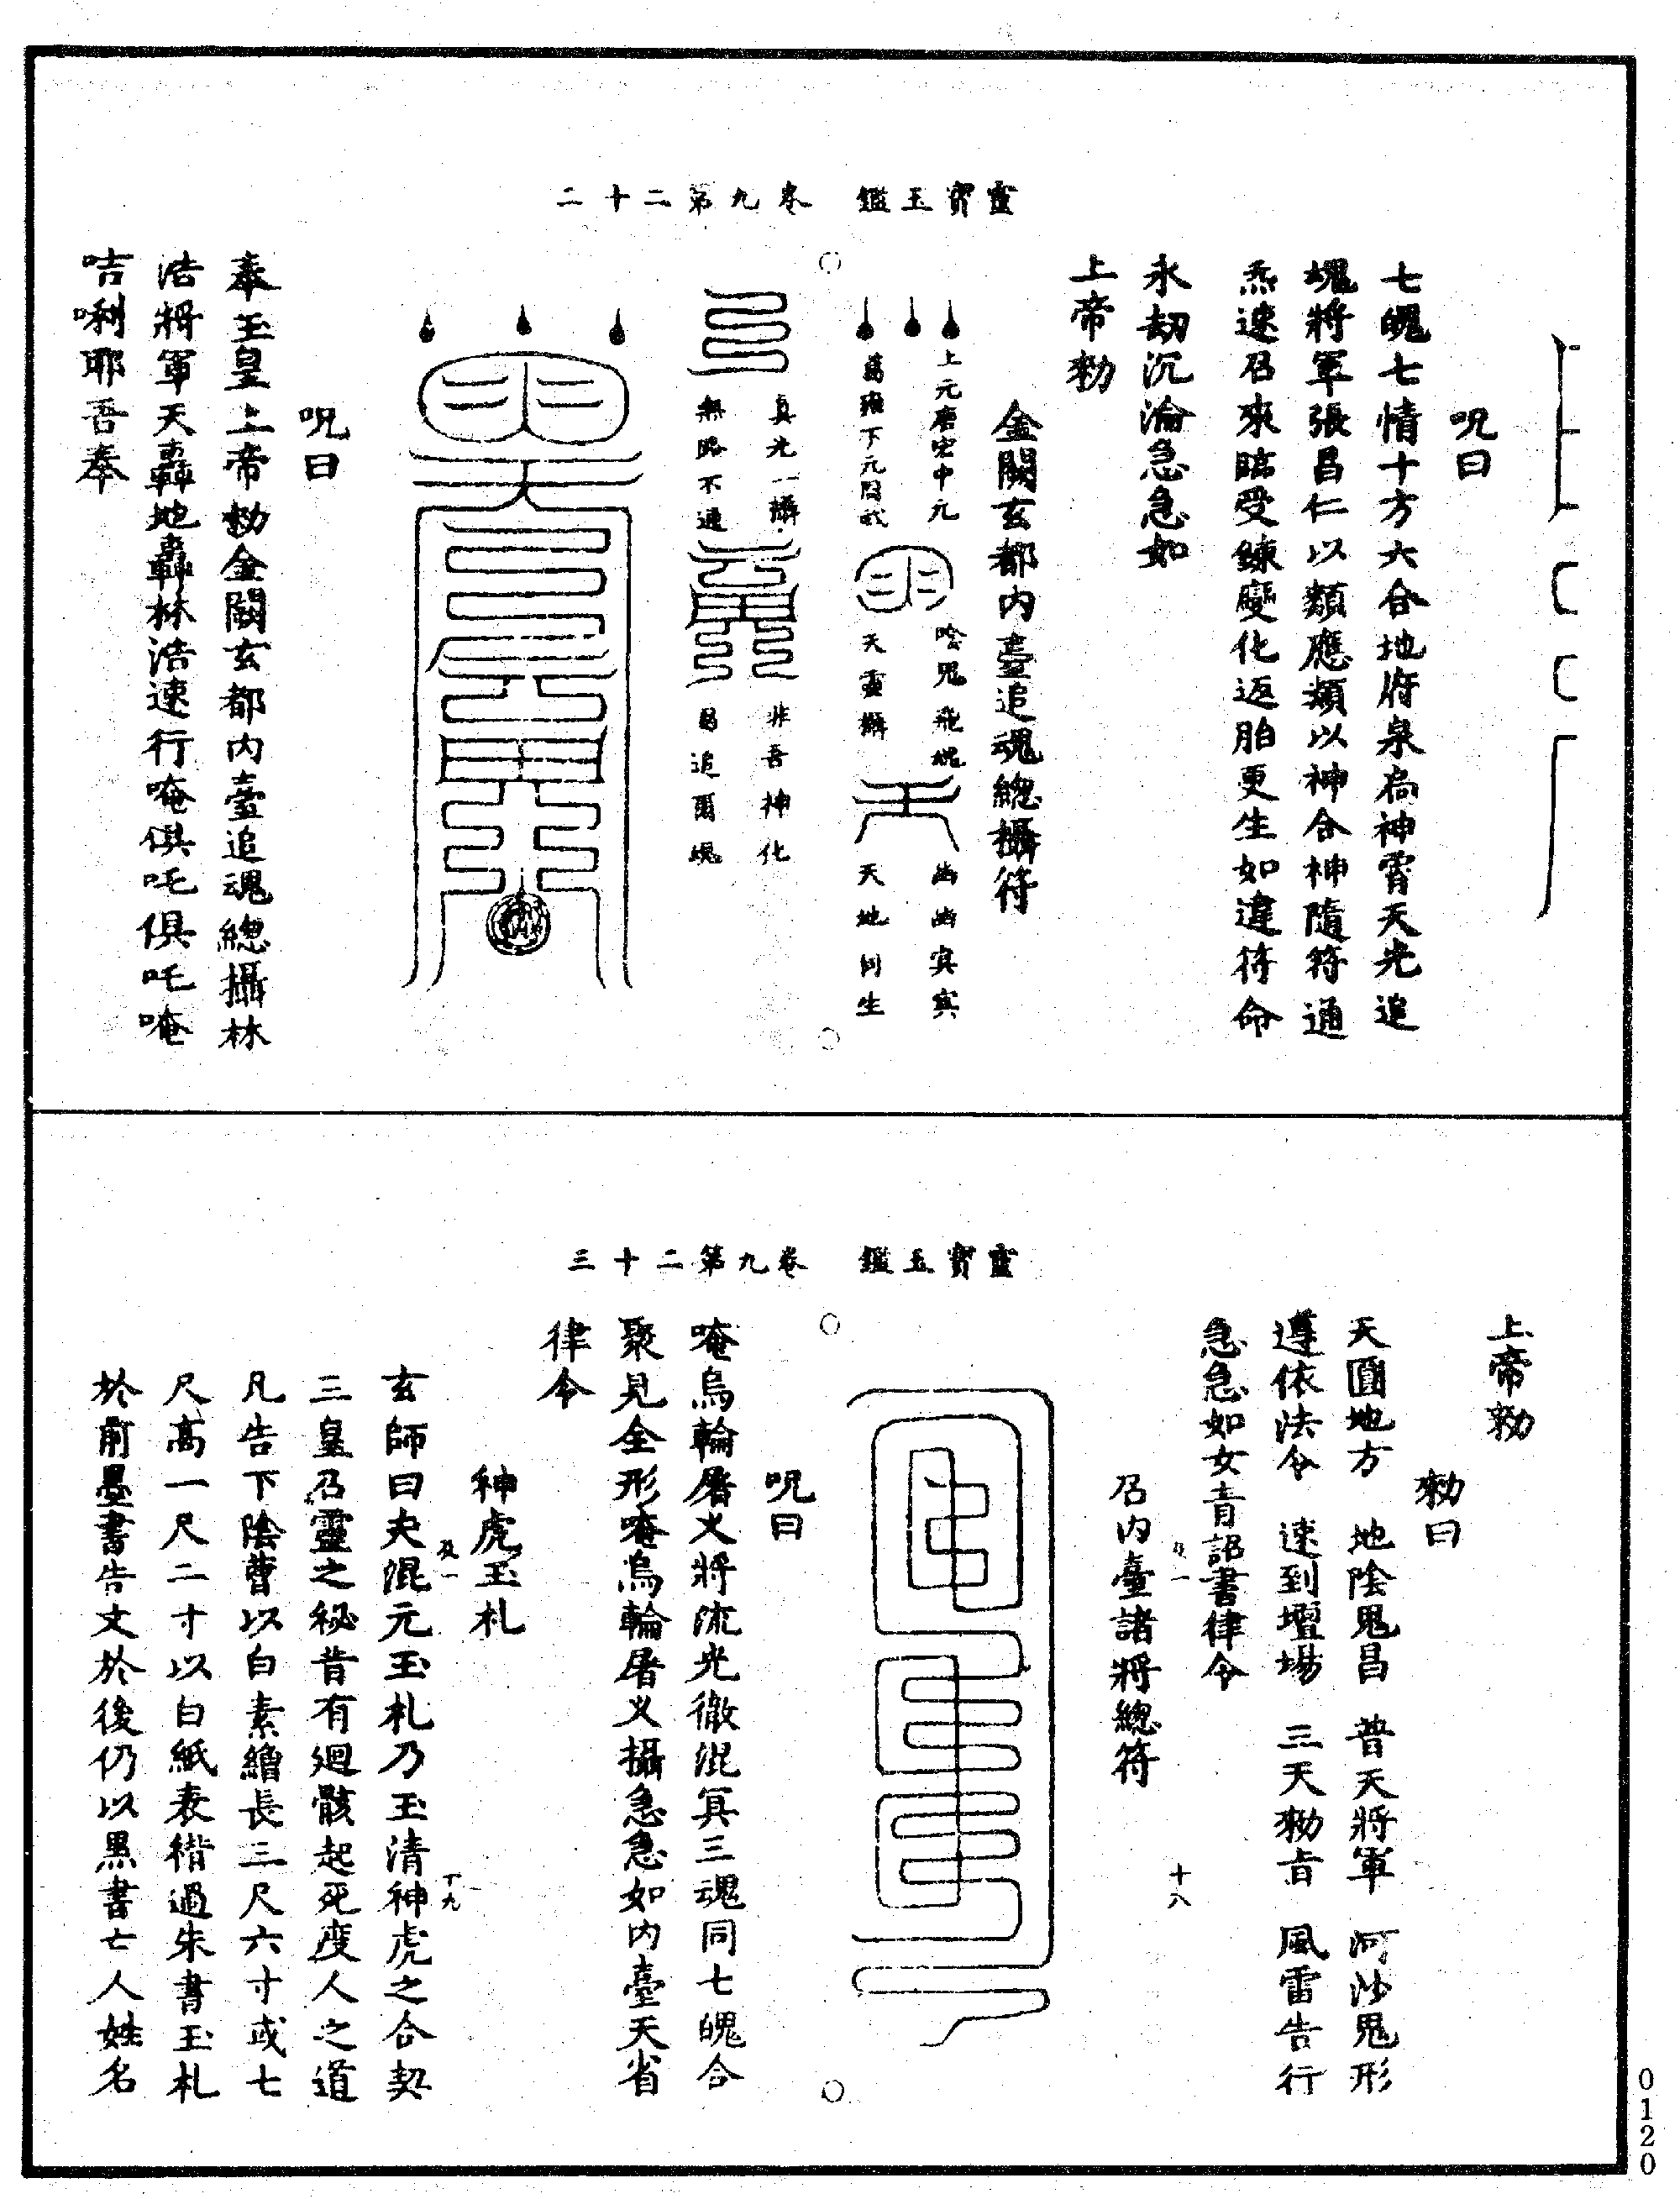 靈寶玉鑑 卷九第二十二
呪曰
七魄七情十方六合地府泉扃神霄天光追
魂將軍張昌仁以類應類以神合神隨符通
炁速召來臨受鍊變化返胎更生如違符命
永劫沉淪急急如
上帝勑
金闕玄都內臺追魂總攝符
上元唐宏中元
葛雍下元周武
唅鬼飛魂
天靈攝
幽幽冥冥
天地同生
真光一攝
無路不通
非吾神化
曷追爾魂
呪曰
奉玉皇上帝勑金闕玄都內臺追魂總攝林
浩將軍天轟地轟林浩速行唵俱吒俱吒唵
吉唎耶吾奉
靈寶玉鑑 卷九第二十三
上帝勑
勑曰
天圓地方 地陰鬼昌 普天將軍 河沙鬼形
遵依法令 速到壇場 三天勑旨 風雷告行
急急如女青詔書律令
十八
召內臺諸將總符
呪曰
唵烏輪屠火將流光徹混冥三魂同七魄合
聚見全形唵烏輪屠义攝急急如內臺天省
律令
神虎玉札
十九
玄師曰夫混元玉札乃玉清神虎之合契
三皇召靈之秘昔有廻骸起死度人之道
凡告下陰曹以白素繒長三尺六寸或七
尺高一尺二寸以白紙表褙過朱書玉札
於前墨書告文於後仍以黑書亡人姓名
0120